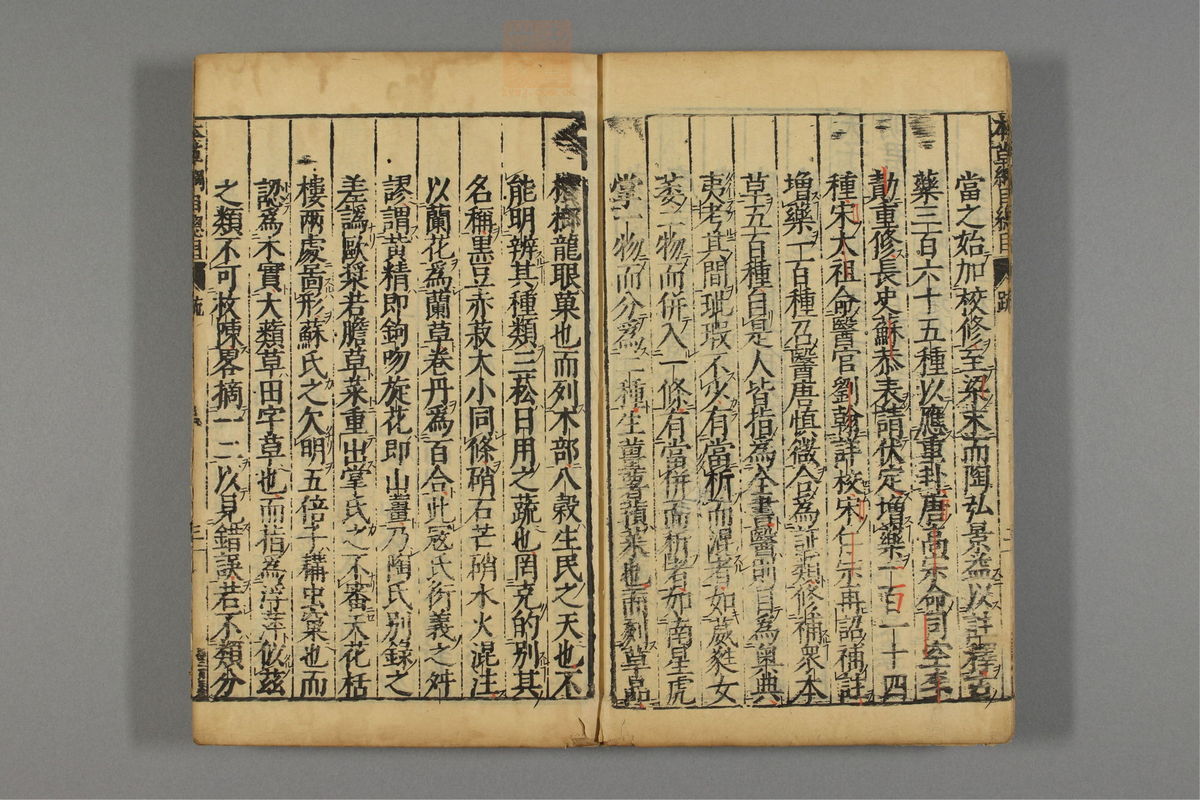 本草綱目總目 疏
當之始加校修至梁末而陶弘景益以註釋古
藥三百六十五種以應重卦唐高宗命司空李
勣重修長史蘇恭表請伏定增藥一百一十四
種宋太祖命醫官劉翰詳校宋仁宗再詔補註
增藥一百種召醫唐慎微合為証類修補眾本
草五百種自是人皆指為全書醫則目為奧典
夷考其間玼瑕不少有當析而混者如葳蕤女
萎二物而併入一條有當併而析者如南星虎
掌一物而分為二種生薑薯蕷菜也而列草品
檳榔龍眼菓也而列木部八穀生民之天也不
能明辨其種類三菘日用之蔬也罔克的別其
名稱黑豆赤菽大小同條硝石芒硝水火混注
以蘭花為蘭草卷丹為百合此寇氏衍義之舛
謬謂黃精即鉤吻旋花即山薑乃陶氏別錄之
差譌歐漿若膽草菜重出掌氏之不審天花栝
樓兩處啚形蘇氏之欠明五倍子耩虫窠也而
認為木實大蘋草田字草也而指為浮萍似茲
之類不可枚陳畧摘一二以見錯誤若不類分
本草綱目總目 疏 二